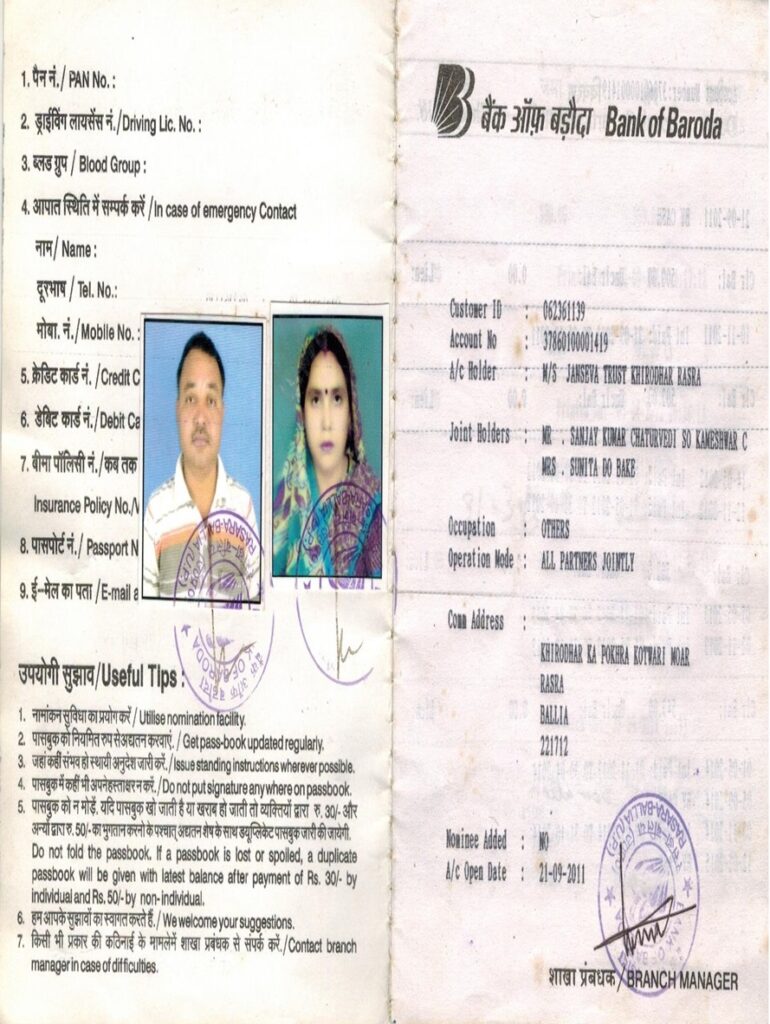 1. पैन नं./ PAN No. :
2. ड्राईविंग लायसेंस नं./Driving Lic. No. :
3. ब्लड ग्रुप / Blood Group :
4. आपात स्थिति में सम्पर्क करें /In case of emergency Contact
नाम/ Name :
दूरभाष / Tel. No.:
मोबा. नं./Mobile No. :
5. क्रेडिट कार्ड नं. /Credit C
6. डेबिट कार्ड नं. /Debit Ca
7. बीमा पॉलिसी नं. /कब तक
Insurance Policy No./
8. पासपोर्ट नं. / Passport N
9. ई-मेल का पता /E-mail a
उपयोगी सुझाव/Useful Tips :
1. नामांकन सुविधा का प्रयोग करें / Utilise nomination facility.
2. पासबुक को नियमित रुप से अद्यतन करवाएं. / Get pass-book updated regularly.
3. जहां कहीं संभव हो स्थायी अनुदेश जारी करें. / Issue standing instructions wherever possible.
4. पासबुक में कहीं भी अपने हस्ताक्षर न करें. / Do not put signature any where on passbook.
5. पासबुक को न मोड़ें. यदि पासबुक खो जाती है या खराब हो जाती तो व्यक्तियों द्वारा रु. 30/- और
अन्यों द्वारा रु. 50/- का भुगतान करनो के पश्चात् अद्यतन शेष के साथ डयूप्लिकेट पासबुक जारी की जायेगी.
Do not fold the passbook. If a passbook is lost or spoiled, a duplicate
passbook will be given with latest balance after payment of Rs. 30/- by
individual and Rs. 50/- by non- individual.
6. हम आपके सुझावों का स्वागत करते हैं. / We welcome your suggestions.
7. किसी भी प्रकार की कठिनाई के मामलेमें शाखा प्रबंधक से संपर्क करें./Contact branch
manager in case of difficulties.
बैंक ऑफ़ बड़ौदा Bank of Baroda
Customer ID : 062361139
Account No : 37860100001419
A/c Holder : M/S JANSEVA TRUST KHIRODHAR RASRA
Joint Holders : MR . SANJAY KUMAR CHATURVEDI SO KAMESHWAR C
MRS . SUNITA DO BAKE
Occupation : OTHERS
Operation Mode : ALL PARTNERS JOINTLY
Comm Address :
KHIRODHAR KA POKHRA KOTWARI MOAR
RASRA
BALLIA
221712
Nominee Added : NO
A/c Open Date : 21-09-2011
शाखा प्रबंधक / BRANCH MANAGER